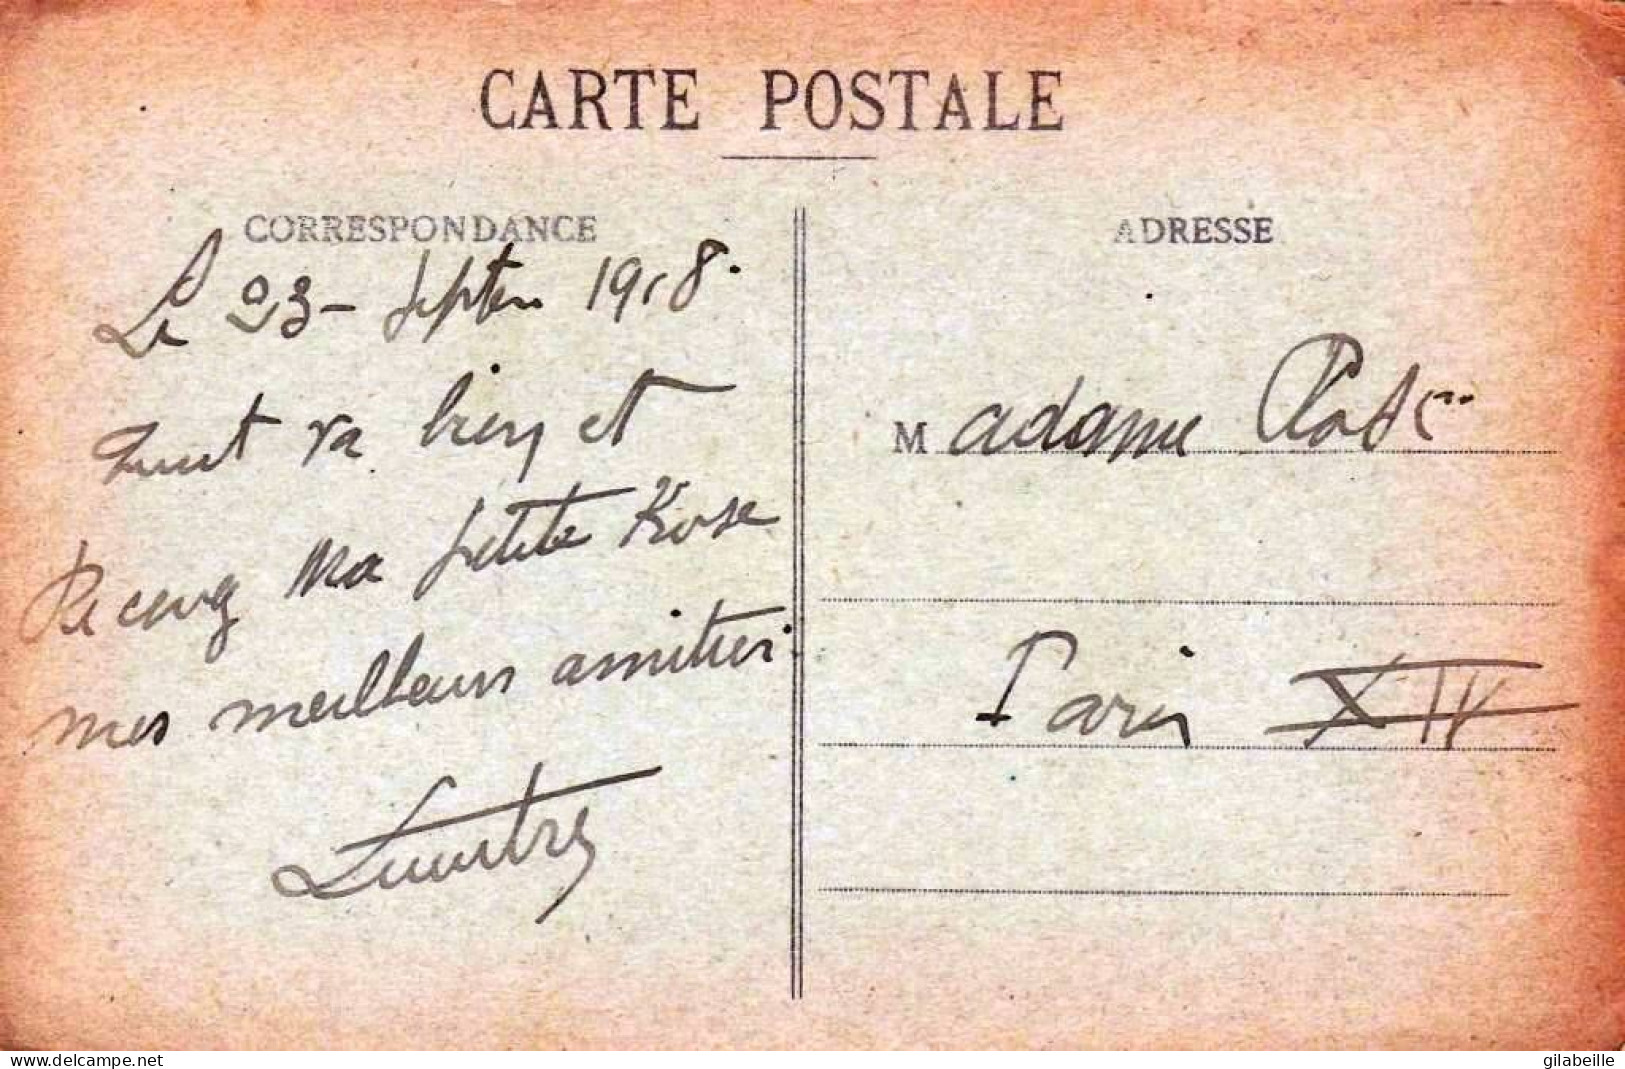 CARTE POSTALE
CORRESPONDANCE
Le 23 - Septem 1918.
Tout va bien et
Recevez Ma petite Rose
mes meilleurs amitiés
ADRESSE
Madame
Paris XIV
www.delcampe.net
gilabeille